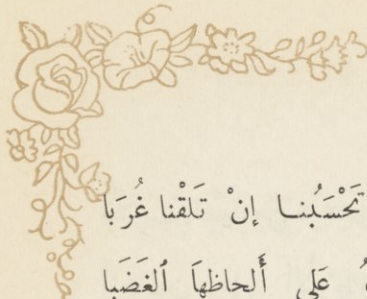 تَحْسَبُنا إنْ تَلَقْنا غُرَبا
عَلى أَلحاظهاَ ٱلغَضَبا